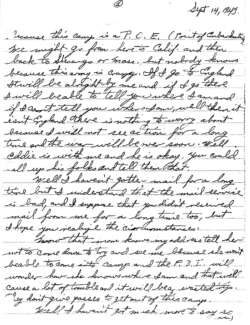 ② Sept 14, 1943
because this camp is a P.O.E. (Port of Embarkation)
We might go from here to Calif. and then
back to Chicago or Mass. but nobody knows
because this army is crazy. If I go to England
it will be alright by me and if I go there
I will be able to tell you where I am and
if I can't tell you where I am, well there
isn't England there is nothing to worry about
because I will not see action for a long
time and the war will be over soon. Well
Eddie is with me and he is okay. You could
call up his folks and tell them that.
Well I haven't gotten mail for a long
time but I understand that the mail service
is bad and I suppose that you didn't received
mail from me for a long time too, but
I hope you realize the circumstances.
Now that mom knows my address tell her
not to come down to try and see me because she won't
be able to come into camp and the F.B.I. will
wonder how she knows where I am and that will
cause a lot of trouble and it will be a wasted
They don't give passes to get out of this camp.
Well I haven't got much more to say so